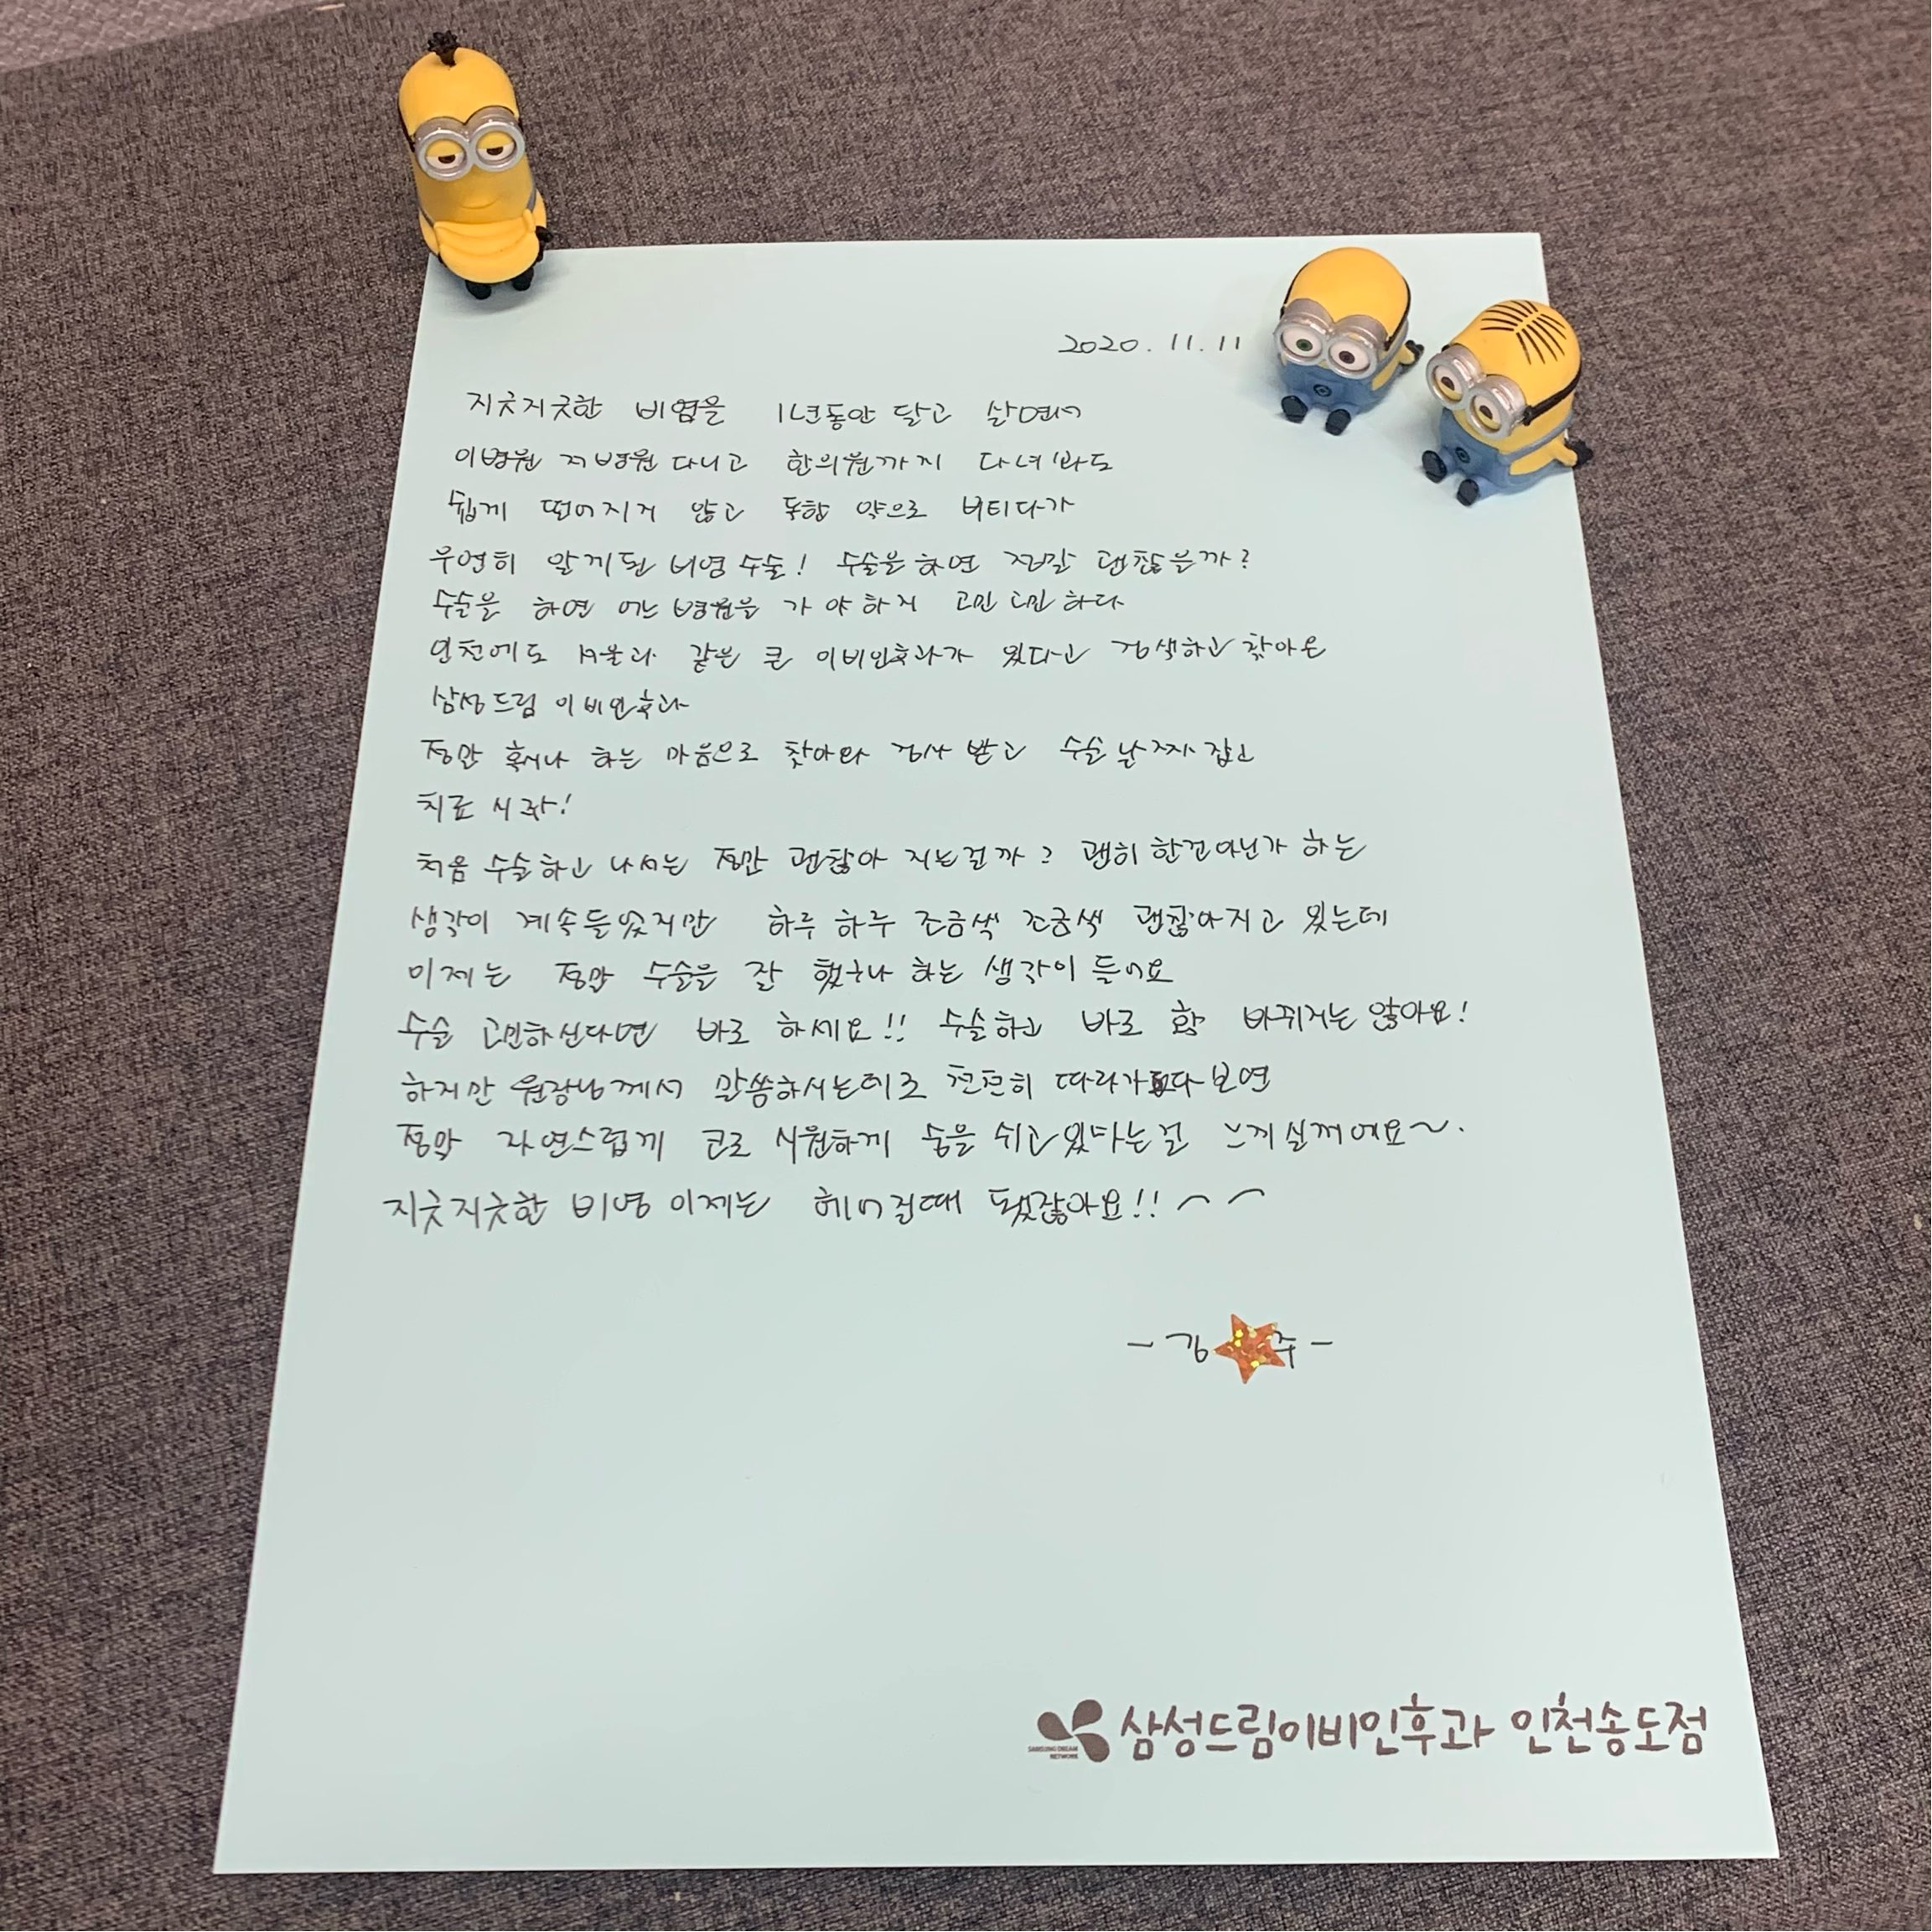 2020. 11. 11
지긋지긋한 비염을 1년동안 달고 살면서
이병원 저병원 다니고 한의원까지 다녀봐도
쉽게 떨어지지 않고 독한 약으로 버티다가
우연히 알게된 비염수술! 수술을 하면 정말 괜찮을까?
수술을 하면 어느 병원을 가야하지 고민 고민 하다
인천에도 서울과 같은 큰 이비인후과가 있다고 검색하고 찾아온
삼성드림 이비인후과
정말 혹시나 하는 마음으로 찾아와 검사 받고 수술 날짜 잡고
치료 시작!
처음 수술하고 나서는 정말 괜찮아 지는걸까? 괜히 한건아닌가 하는
생각이 계속들었지만 하루 하루 조금씩 조금씩 괜찮아지고 있는데
이제는 정말 수술을 잘 했구나 하는 생각이 들어요
수술 고민하신다면 바로 하세요!! 수술하고 바로 확 바뀌지는 않아요!
하지만 원장님께서 말씀하시는데로 천천히 따라가다보면
정말 자연스럽게 코로 시원하게 숨을 쉬고있다는걸 느끼실꺼에요~.
지긋지긋한 비염 이제는 헤어질때 됐잖아요!! ^^
- 김 주 -
SAMSUNG DREAM NETWORK
삼성드림이비인후과 인천송도점